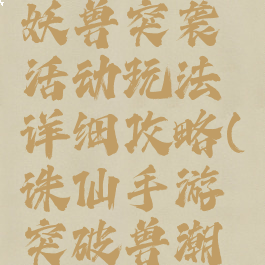 妖兽突袭
活动玩法
详细攻略(
诛仙手游
突破兽潮